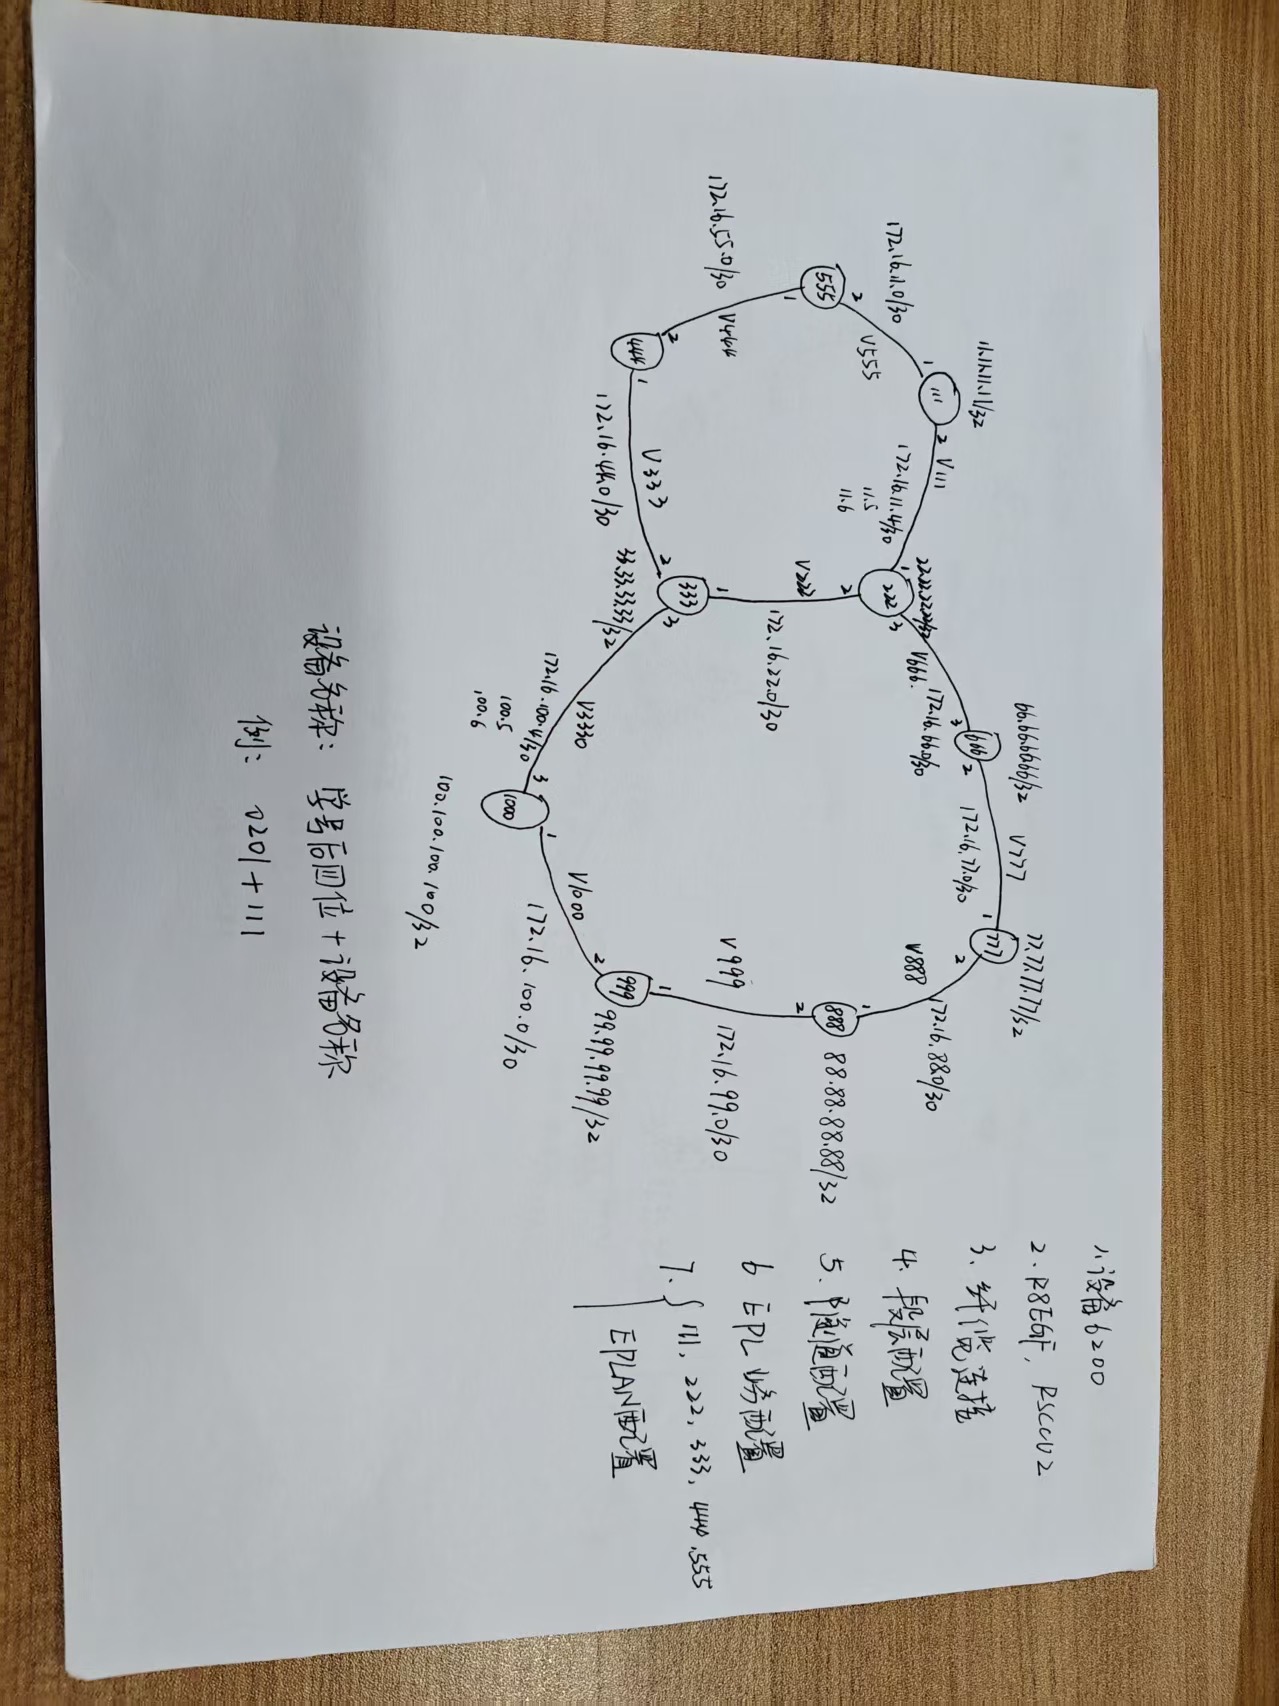 172.16.11.0/30
11.11.11.11/32
555
2
V555
1
111
2
V111
172.16.11.4/30
11.5
11.6
1
222
2
3
V666
172.16.66.0/30
66.66.66.66/32
3
666
2
V777
172.16.77.0/30
1
777
77.77.77.77/32
2
V888
172.16.88.0/30
1
888
88.88.88.88/32
2
V999
172.16.99.0/30
1
999
99.99.99.99/32
2
V1000
172.16.100.0/30
1
1000
100.100.100.100/32
3
V3330
172.16.100.4/30
100.5
100.6
3
333
33.33.33.33/32
1
V222
172.16.22.0/30
2
V333
172.16.44.0/30
1
444
2
V444
172.16.55.0/30
1
1.设备6200
2.R8EGF,RSCCU2
3.纤缆连接
4.段层配置
5.隧道配置
6 EPL业务配置
7.{111,222,333,444,555
EPLAN配置
设备名称:学号后四位+设备名称
例:0201+111